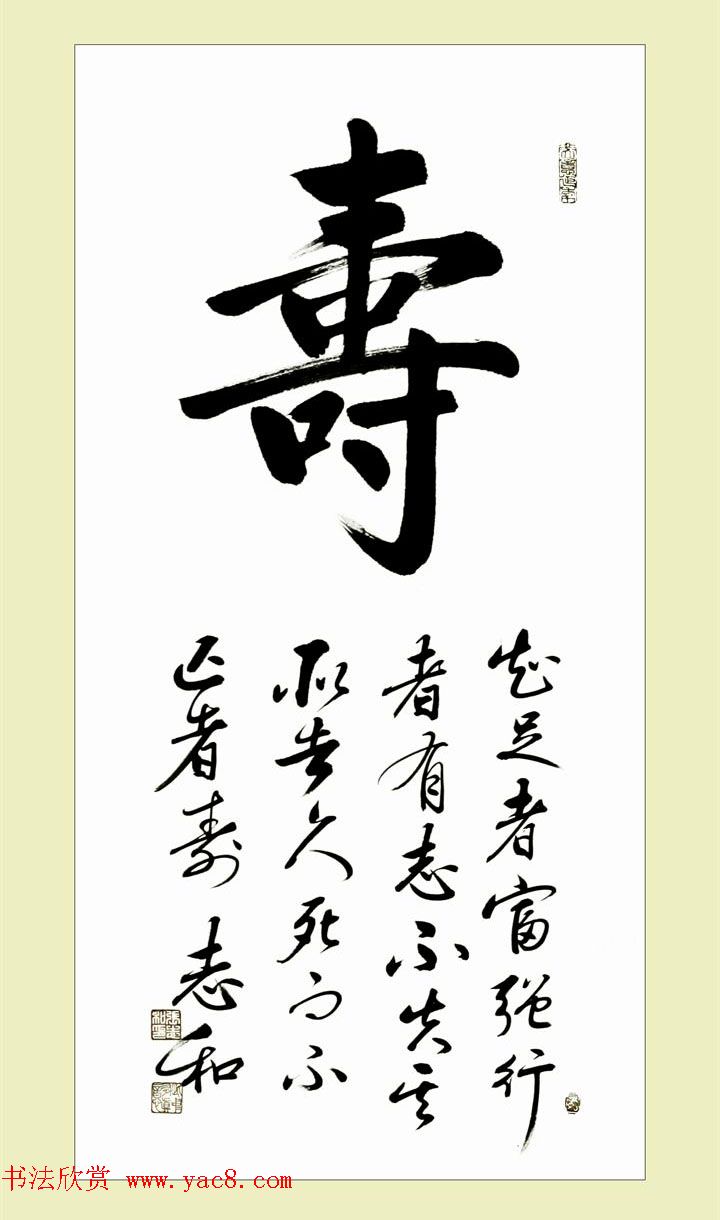 壽
知足者富强行
者有志不失其
所者久死而不
亡者寿 志和
书法欣赏 www.yac8.com